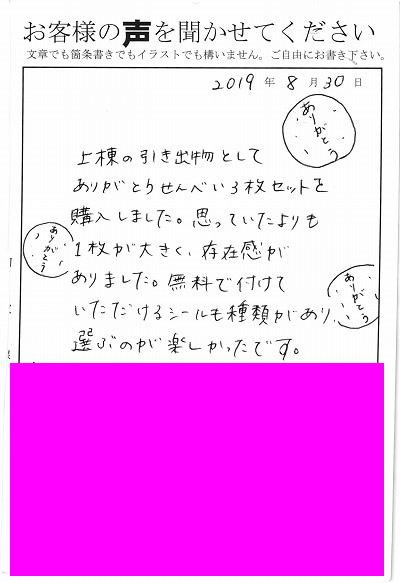 お客様の声を聞かせてください
文章でも箇条書きでもイラストでも構いません。ご自由にお書き下さい。
2019年8月30日
ありがとう
上棟の引き出物として
ありがとうせんべい3枚セットを
購入しました。思っていたよりも
ありがとう
1枚が大きく、存在感が
ありました。無料で付けて
ありがとう
いただけるシールも種類があり、
選ぶのが楽しかったです。